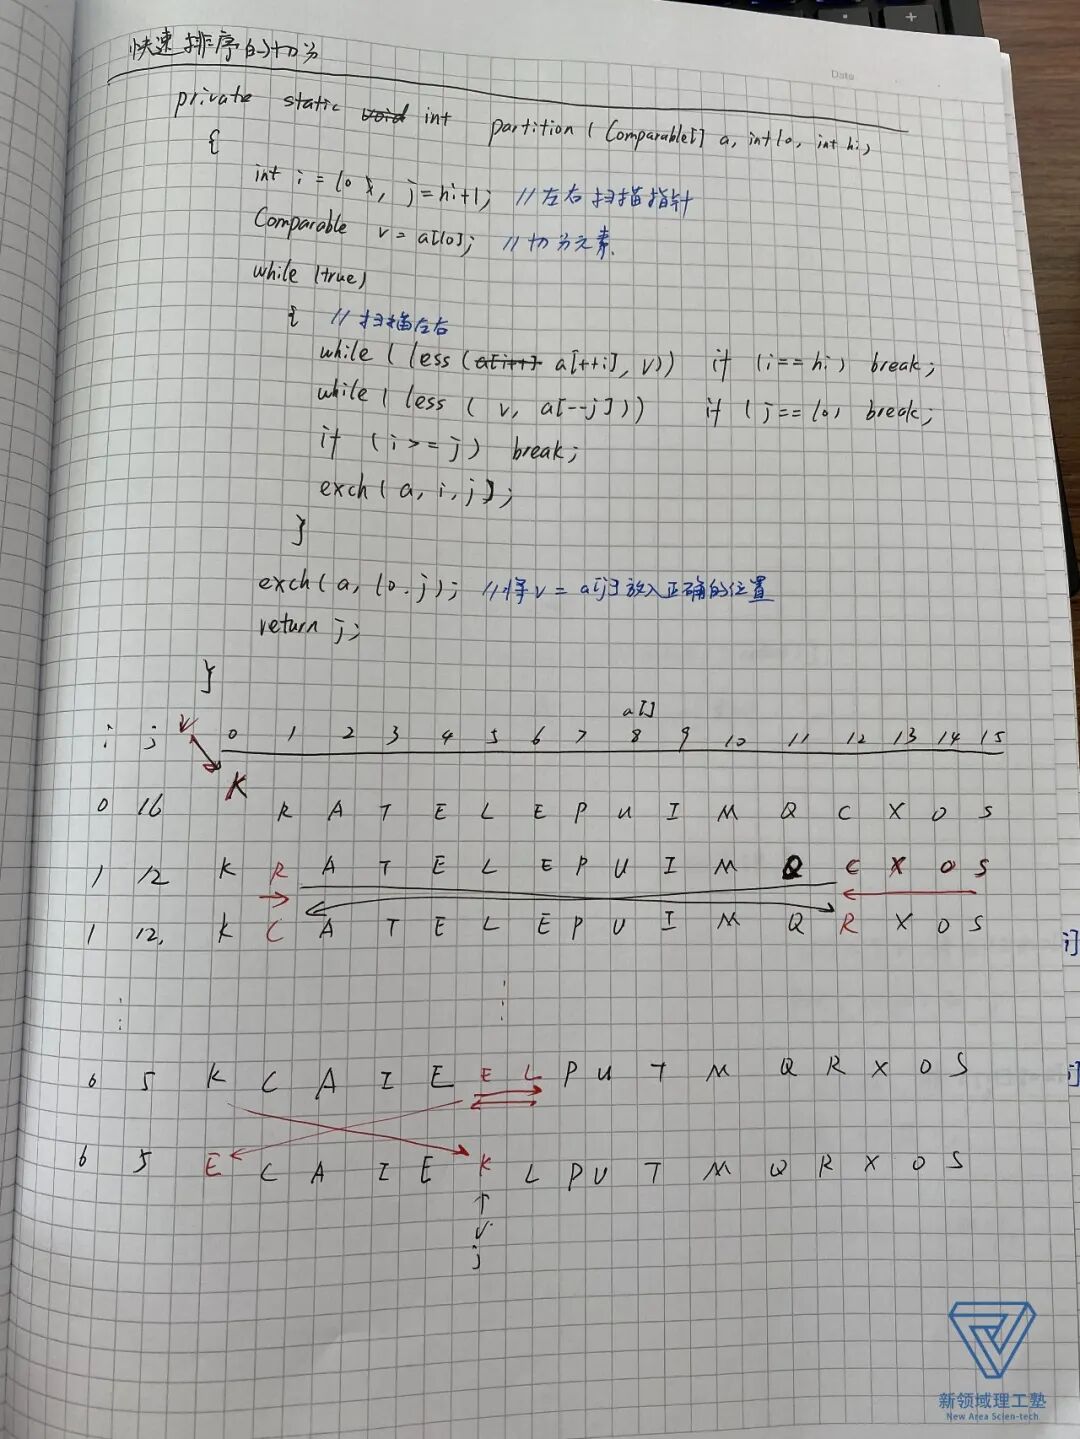 Date
快速排序的切分
private static void int partition ( Comparable[] a, int lo, int hi )
{
int i = lo, j=hi+1; //左右扫描指针
Comparable v = a[lo]; //切分元素.
while (true)
{ //扫描左右
while ( less (a[i++] a[++i], v)) if (i==hi) break;
while ( less ( v, a[--j])) if (j==lo) break;
if (i>=j) break;
exch( a, i, j);
}
exch( a, lo. j); //将v = a[j]放入正确的位置
return j;
}
a[]
i j v 0 1 2 3 4 5 6 7 8 9 10 11 12 13 14 15
0 16 K R A T E L E P U I M Q C X O S
1 12 K R A T E L E P U I M Q C X O S
1 12. K C A T E L E P U I M Q R X O S
i]
6 5 K C A I E E L P U T M Q R X O S
j]
6 5 E C A I E K L P U T M Q R X O S
v
j
新领域理工塾
New Area Scien-tech